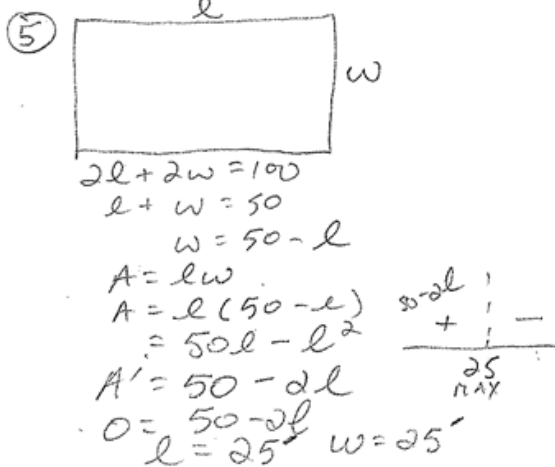 5
l
w
2l + 2w = 100
l + w = 50
w = 50 - l
A = lw
A = l(50 - l)
= 50l - l²
A' = 50 - 2l
0 = 50 - 2l
l = 25' w = 25'
50-2l
+ -
25
MAX